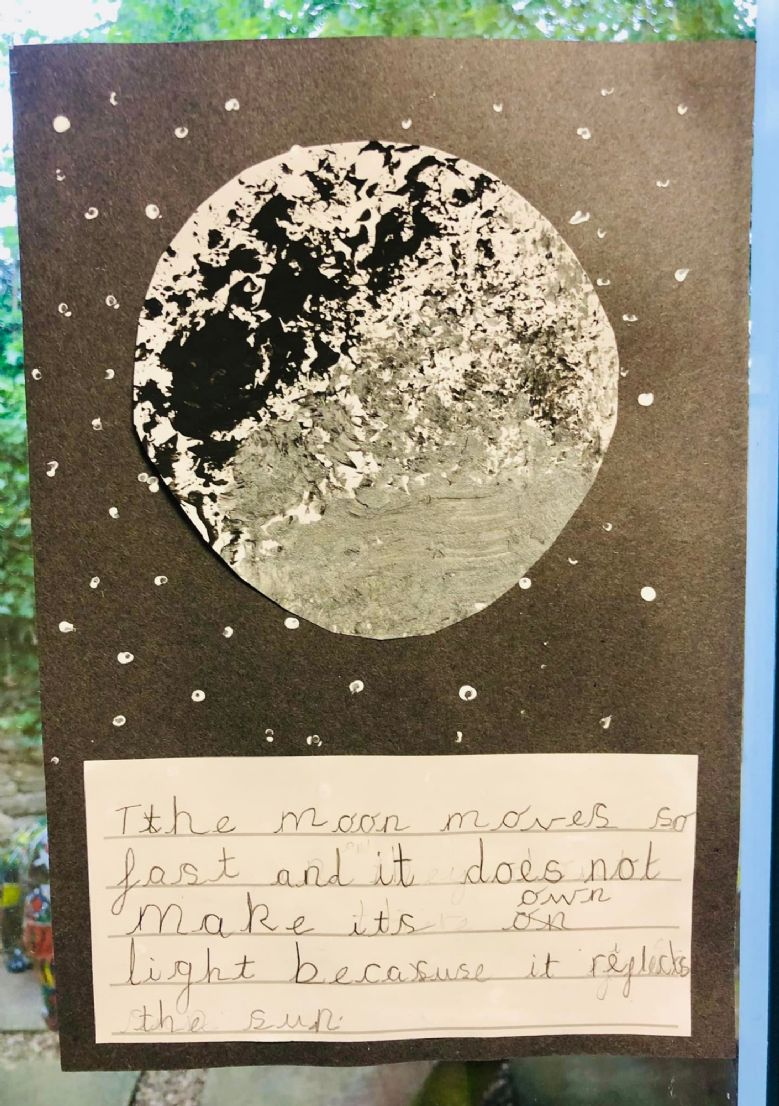 Tthe moon moves so
fast and it does not
own
make its on
light becasuse it reflects
the sun.